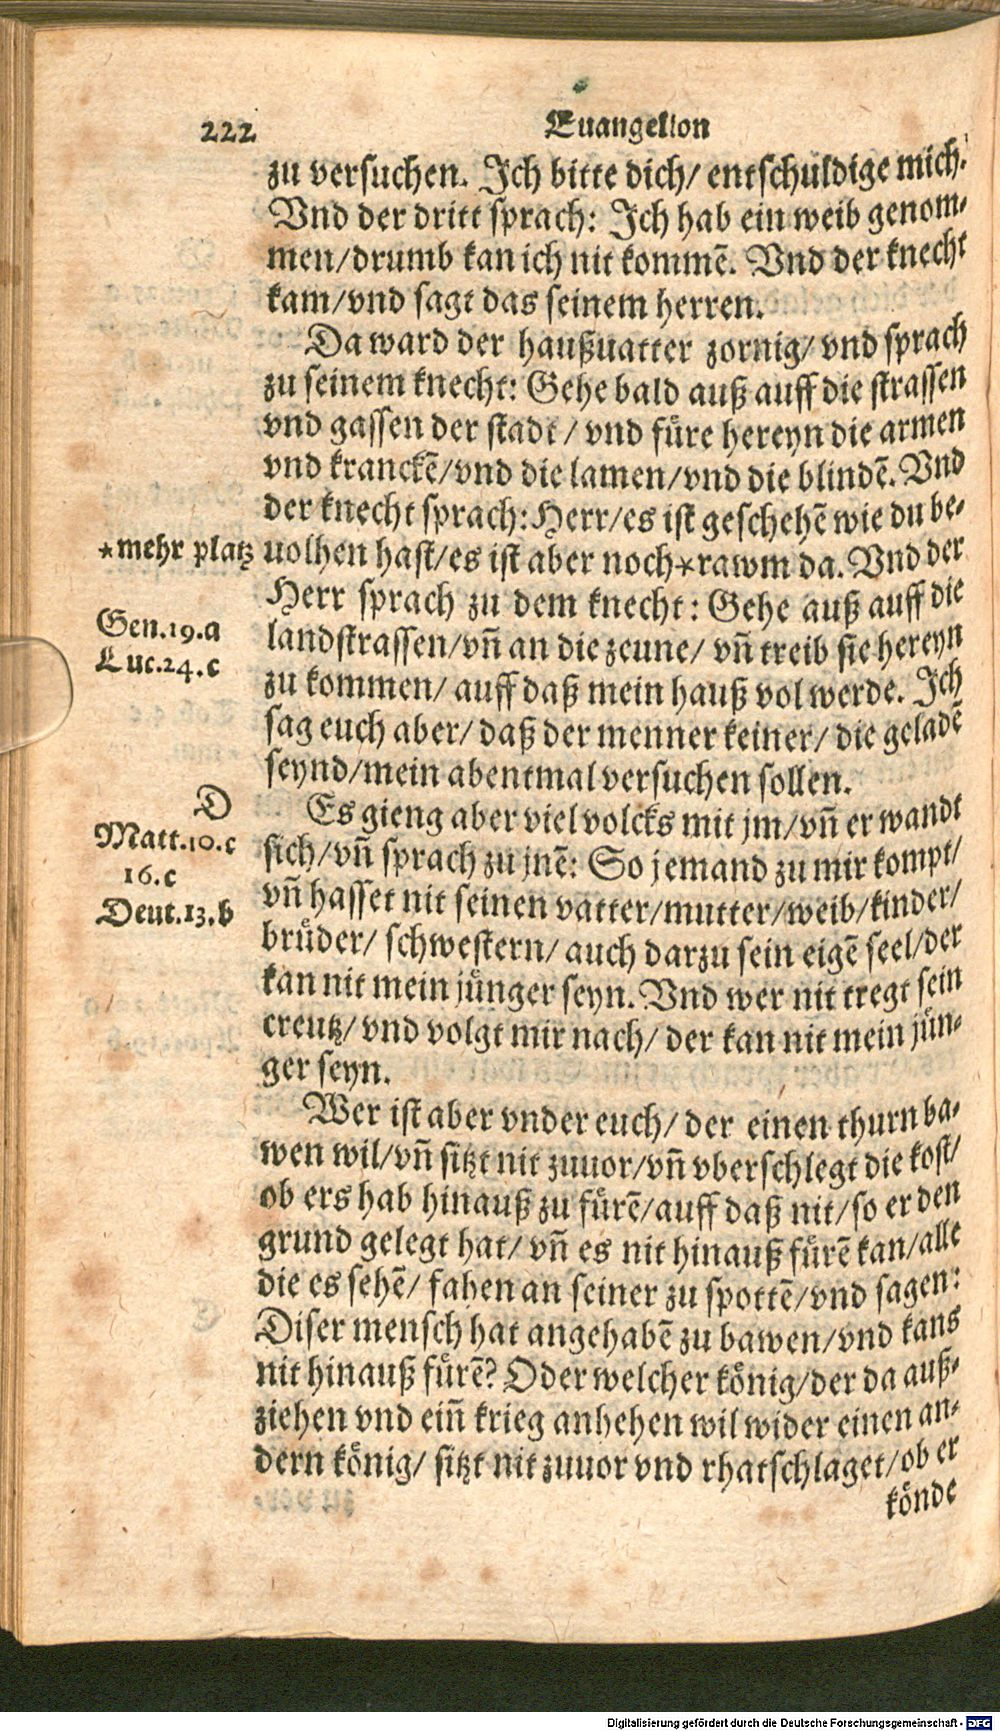 222 Euangelion
zu versuchen. Ich bitte dich/ entschuldige mich.
Vnd der dritt sprach: Ich hab ein weib genom-
men/drumb kan ich nit kommē. Vnd der knecht
kam/vnd sagt das seinem herren.
Da ward der haußuatter zornig/ vnd sprach
zu seinem knecht: Gehe bald auß auff die strassen
vnd gassen der stadt / vnd fůre hereyn die armen
vnd kranckē/vnd die lamen/vnd die blindē. Vnd
der knecht sprach: Herr/es ist geschehē wie du be-
*mehr platz
uolhen hast/es ist aber noch*rawm da. Vnd der
Herr sprach zu dem knecht: Gehe auß auff die
Gen.19.a
landstrassen/vñ an die zeune/ vñ treib sie hereyn
Luc.24.c
zu kommen/ auff daß mein hauß vol werde. Ich
sag euch aber/ daß der menner keiner/ die geladē
seynd/mein abentmal versuchen sollen.
D
Es gieng aber viel volcks mit jm/vñ er wandt
Matt.10.c
sich/vñ sprach zu jnē: So jemand zu mir kompt/
16.c
vñ hasset nit seinen vatter/mutter/weib/kinder/
Deut.13.b
brüder/ schwestern/ auch darzu sein eigē seel/der
kan nit mein jůnger seyn. Vnd wer nit tregt sein
creutz/ vnd volgt mir nach/ der kan nit mein jůn-
ger seyn.
Wer ist aber vnder euch/ der einen thurn ba-
wen wil/vñ sitzt nit zuuor/vñ vberschlegt die kost/
ob ers hab hinauß zu fůrē/auff daß nit/so er den
grund gelegt hat/ vñ es nit hinauß fůrē kan/alle
die es sehē/ fahen an seiner zu spottē/vnd sagen:
Diser mensch hat angehabē zu bawen/vnd kans
nit hinauß fůrē? Oder welcher kônig/der da auß-
ziehen vnd eiñ krieg anhehen wil wider einen an-
dern kônig/ sitzt nit zuuor vnd rhatschlaget/ob er
kônde
Digitalisierung gefördert durch die Deutsche Forschungsgemeinschaft - DFG